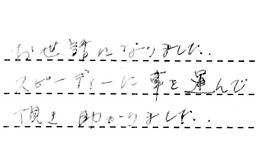 お世話になりました。
スピーディーに車を運んで
頂き助かりました。